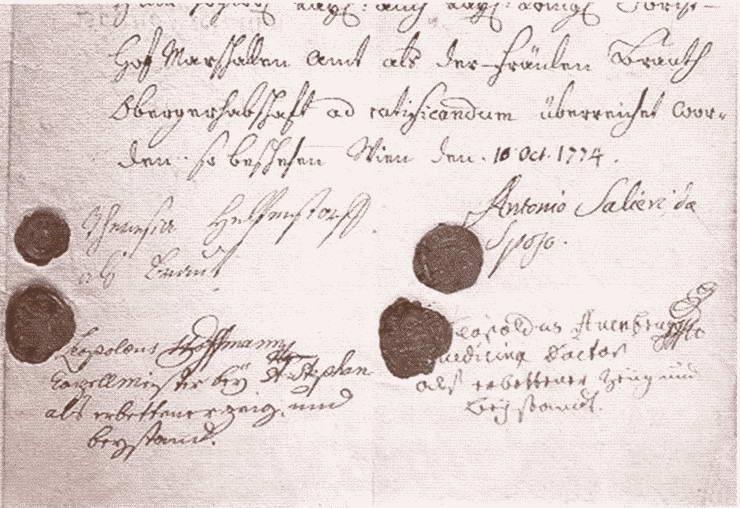 Hof Marschallen Amt als der fräulen Brauth
Obergerhabschaft ad ratificandum überreichet wor-
den. so beschehen Wien den. 10 Oct. 1774.
Theresia Helfenstorff.
als Braut
Antonio Salieri da
Sposo.
Leopoldus Hoffmann
Capellmeister bey St Stephan
als erbettener zeig. und
beystand.
Leopoldus Auenbrugg
Medicinæ Doctor
als erbettener zeug und
beystandt.